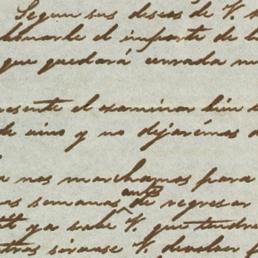 Segun sus deseos de V. h
abonarle el importe de l
que quedará cerrada nu
esente el examinar bien s
de vino y no dejarémos d
nos marchamos para
as semanas antes de regresar
ya sabe V. que tendre
tras sirvase V. devolver p